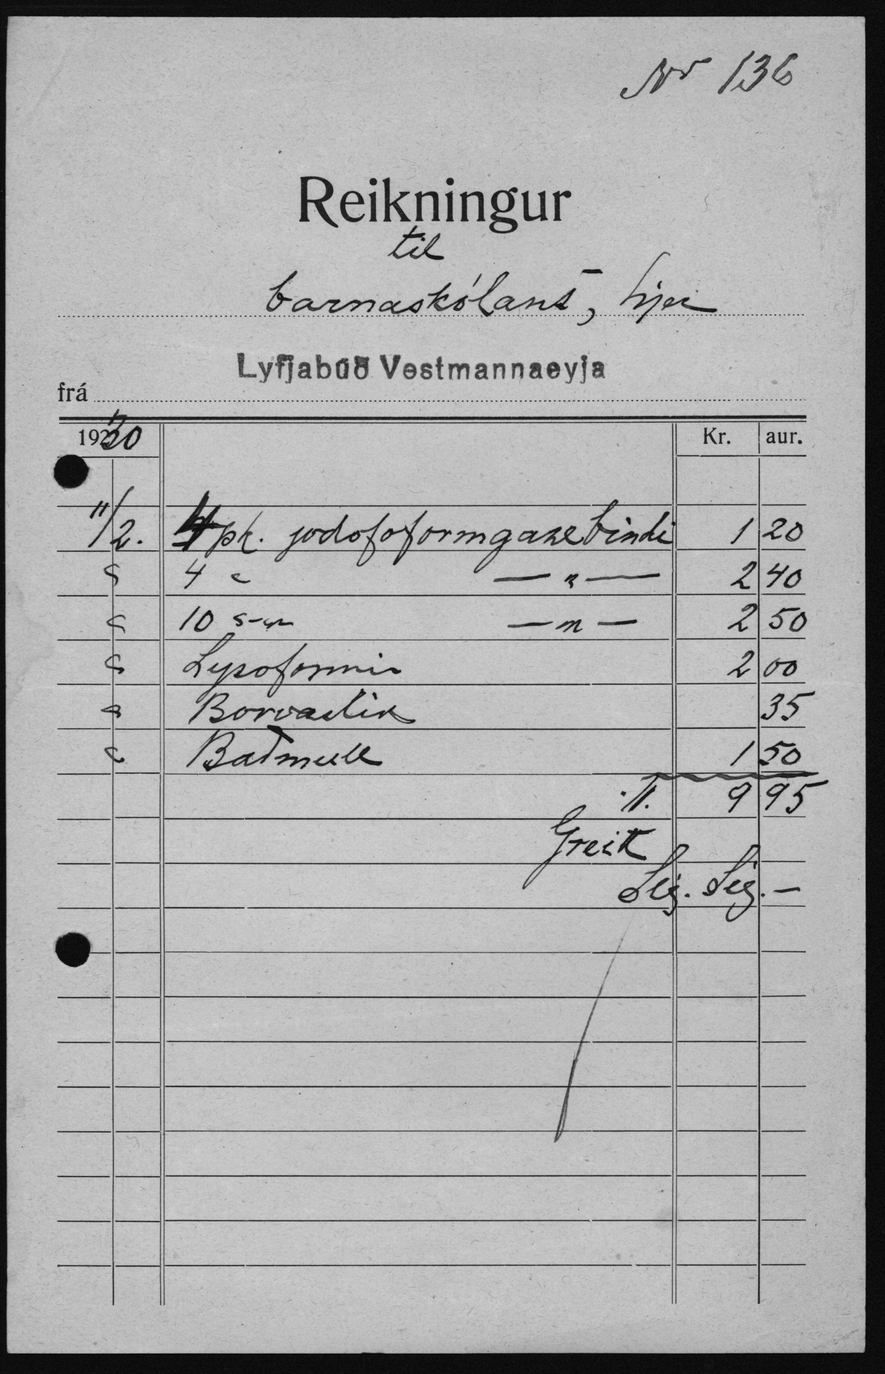 Nr 136
Reikningur
til
barnaskólans, hjer
Lyfjabúð Vestmannaeyja
frá
1930 Kr. aur.
11/2. 4 pk. jodofoformgazebindi 1 20
" 4 " — " — 2 40
" 10 — " — 2 50
" Lysoformi 2 00
" Borvaselin 35
" Baðmull 1 50
9 95
Greitt
Sig. Sig. —